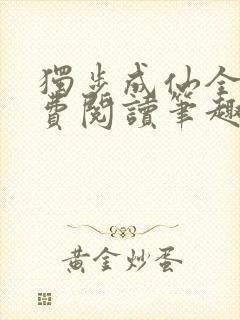 獨步成仙全
費閱讀筆趣
黃金炒蛋